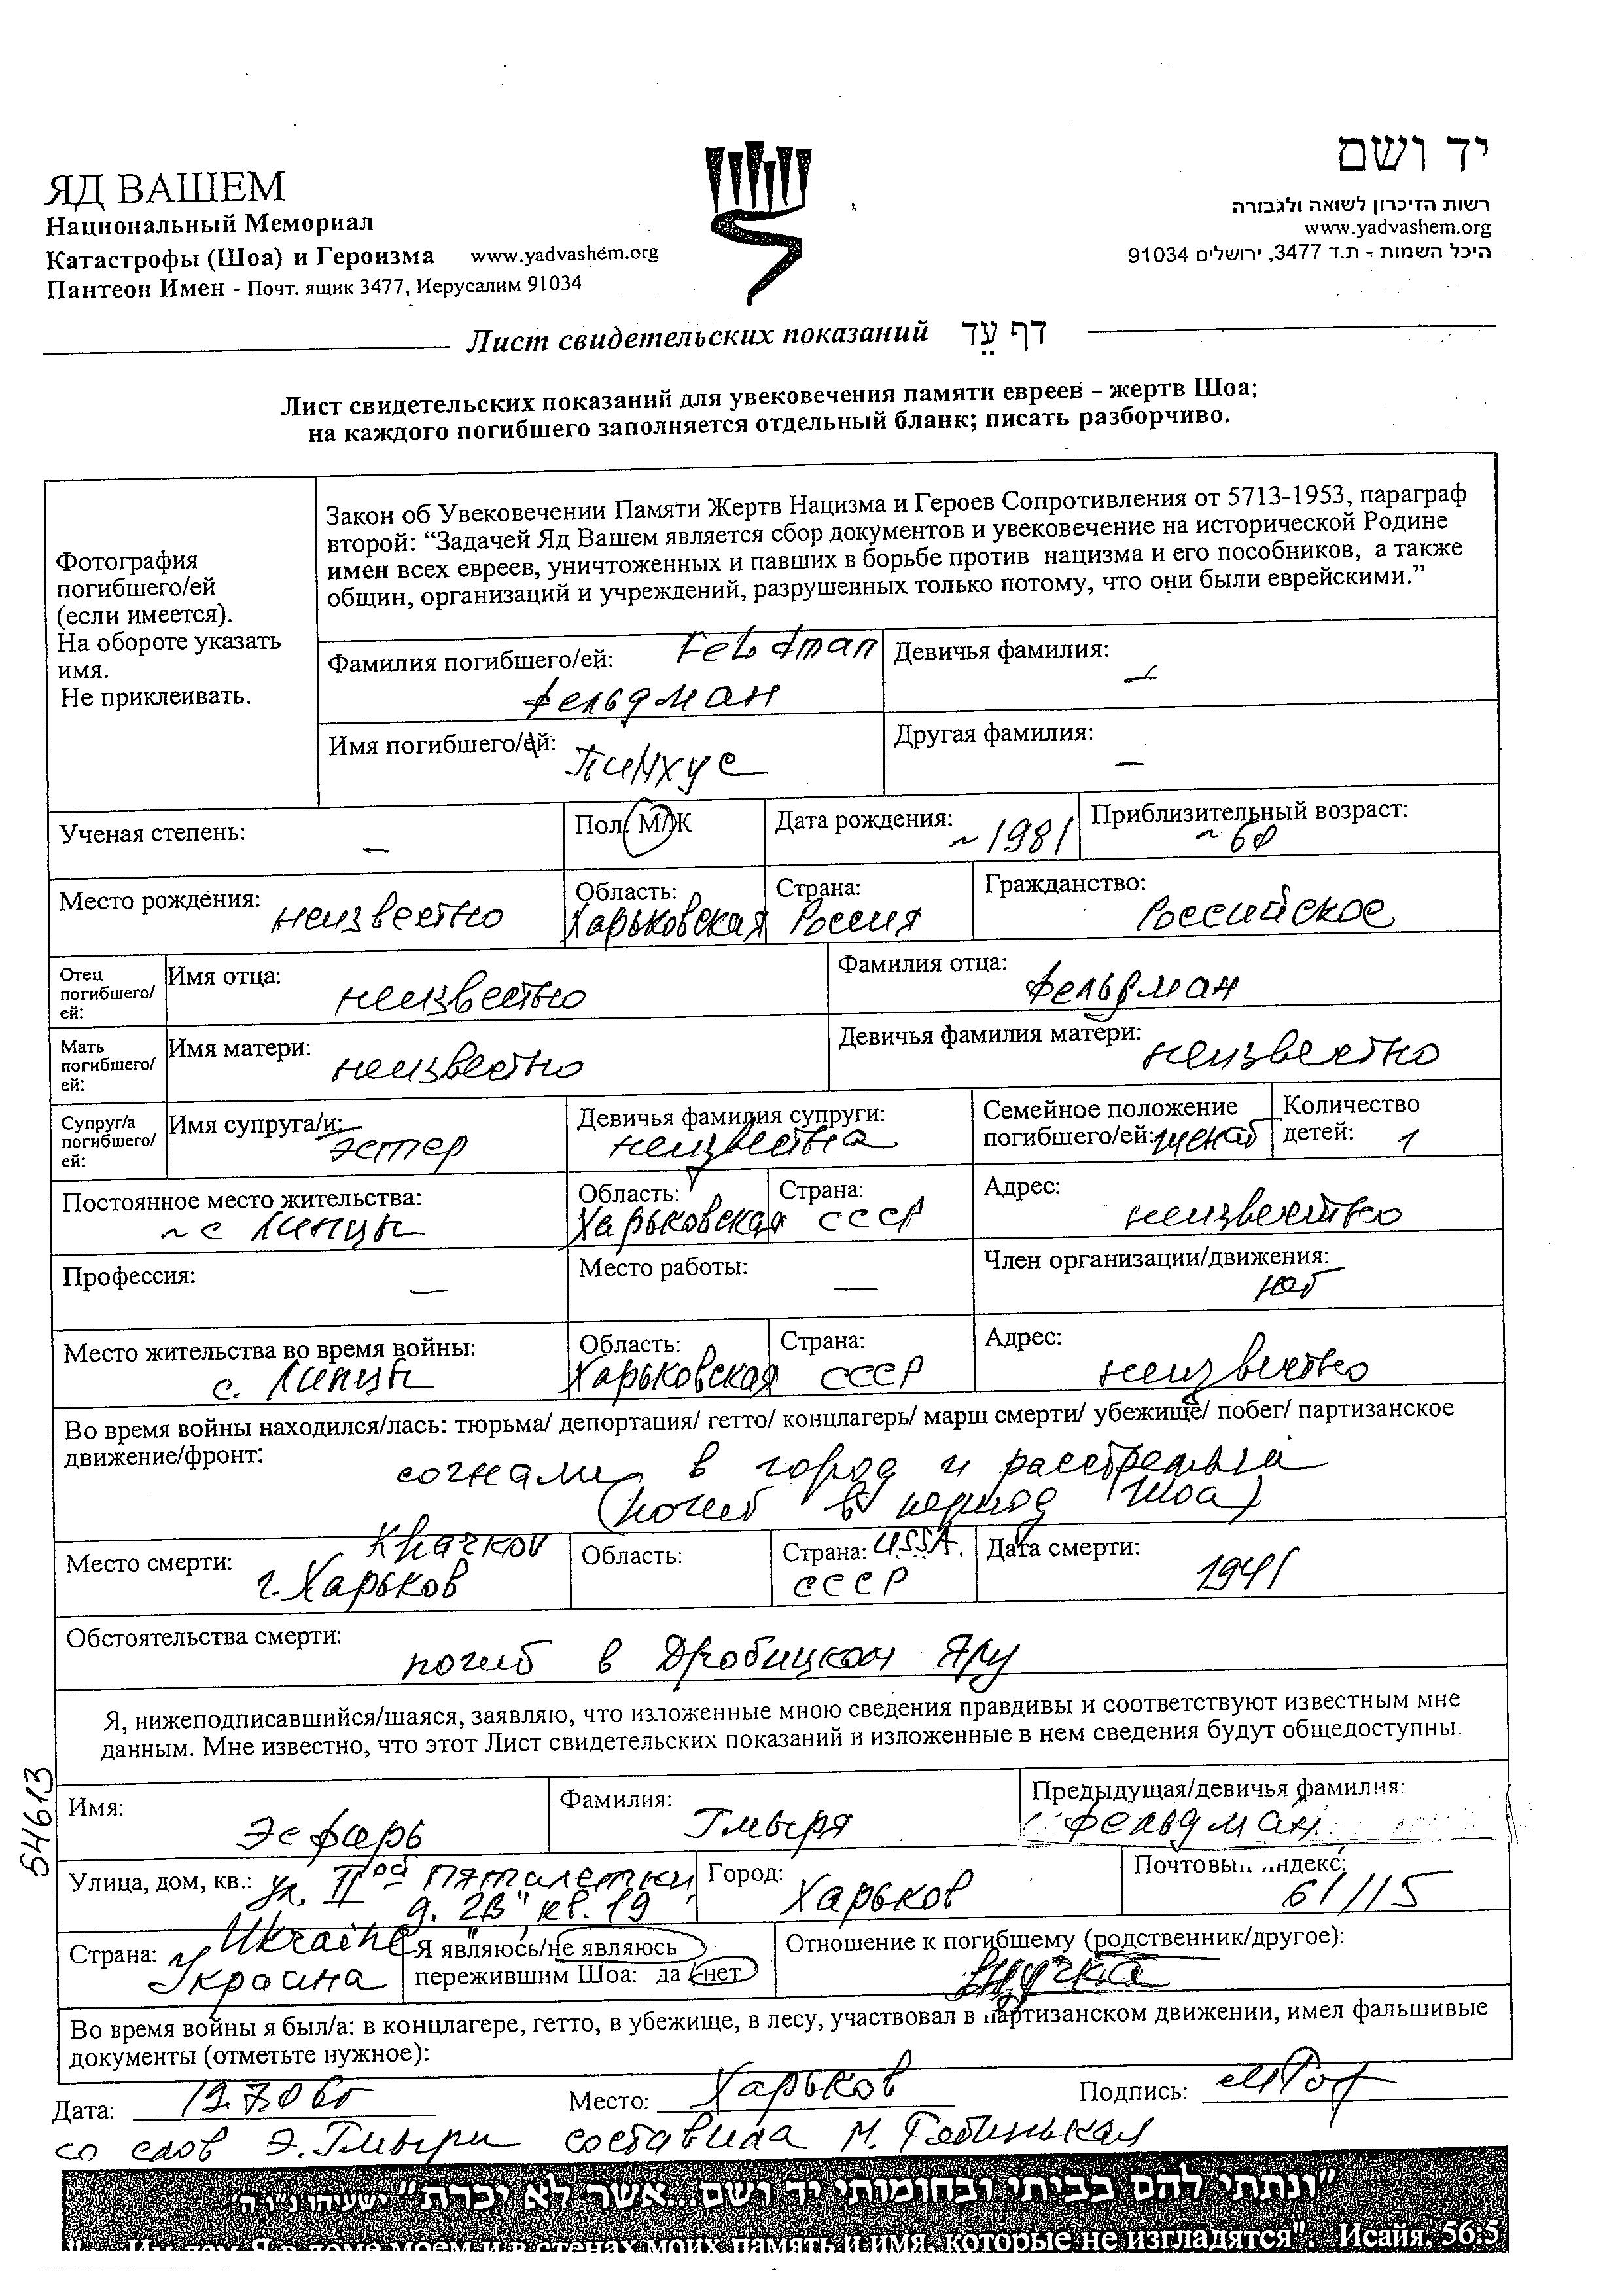 ЯД ВАШЕМ
Национальный Мемориал
Катастрофы (Шоа) и Героизма www.yadvashem.org
Пантеон Имен - Почт. ящик 3477, Иерусалим 91034
יד ושם
רשות הזיכרון לשואה ולגבורה
www.yadvashem.org
היכל השמות - ת.ד 3477, ירושלים 91034
Лист свидетельских показаний דף עֵד
Лист свидетельских показаний для увековечения памяти евреев - жертв Шоа;
на каждого погибшего заполняется отдельный бланк; писать разборчиво.
Фотография
погибшего/ей
(если имеется).
На обороте указать
имя.
Не приклеивать.
Закон об Увековечении Памяти Жертв Нацизма и Героев Сопротивления от 5713-1953, параграф
второй: “Задачей Яд Вашем является сбор документов и увековечение на исторической Родине
имен всех евреев, уничтоженных и павших в борьбе против нацизма и его пособников, а также
общин, организаций и учреждений, разрушенных только потому, что они были еврейскими.”
Фамилия погибшего/ей: Feldman
Фельдман
Девичья фамилия:
–
Имя погибшего/ей: Пинхус
Другая фамилия:
–
Ученая степень: –
Пол: М/Ж
Дата рождения: ~1981
Приблизительный возраст:
~60
Место рождения: неизвестно
Область:
Харьковская
Страна:
Россия
Гражданство:
Российское
Отец
погибшего/
ей:
Имя отца: неизвестно
Фамилия отца:
Фельдман
Мать
погибшего/
ей:
Имя матери: неизвестно
Девичья фамилия матери: неизвестно
Супруг/а
погибшего/
ей:
Имя супруга/и: Эстер
Девичья фамилия супруги:
неизвестна
Семейное положение
погибшего/ей: женат
Количество
детей: 1
Постоянное место жительства:
~ с Липцы
Область:
Харьковская
Страна:
СССР
Адрес:
неизвестно
Профессия: —
Место работы: —
Член организации/движения:
нет
Место жительства во время войны:
с. Липцы
Область:
Харьковская
Страна:
СССР
Адрес:
неизвестно
Во время войны находился/лась: тюрьма/ депортация/ гетто/ концлагерь/ марш смерти/ убежище/ побег/ партизанское
движение/фронт:
согнали в город и расстреляли
(погиб в период Шоа)
Место смерти:
г. Харьков
Область:
Страна:
СССР
Дата смерти:
1941
Обстоятельства смерти:
погиб в Дробицком Яру
Я, нижеподписавшийся/шаяся, заявляю, что изложенные мною сведения правдивы и соответствуют известным мне
данным. Мне известно, что этот Лист свидетельских показаний и изложенные в нем сведения будут общедоступны.
54613
Имя: Эсфирь
Фамилия: Гмыря
Предыдущая/девичья фамилия:
Фельдман
Улица, дом, кв.: ул. IIой Пятилетки
д. 2В", кв. 19
Город: Харьков
Почтовый индекс:
61115
Страна: Ukraine
Украина
Я являюсь/не являюсь
пережившим Шоа: да /нет
Отношение к погибшему (родственник/другое):
внучка
Во время войны я был/а: в концлагере, гетто, в убежище, в лесу, участвовал в партизанском движении, имел фальшивые
документы (отметьте нужное):
Дата: Место: Харьков Подпись:
со слов Э. Гмыри составила М.
"ונתתי להם בביתי ובחומותי יד ושם...אשר לא יכרת" ישעיהו נ"ו ה'
моем и в стенах моих память и имя, которые не изгладятся". Исайя, 56:5